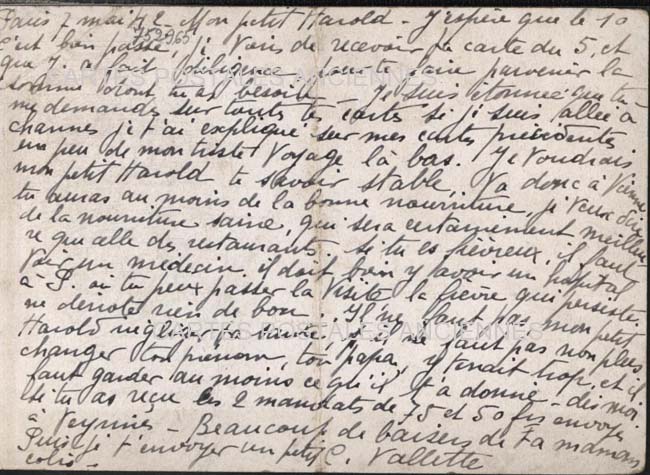 Paris 2 mai 42 - Mon petit Harold - J'espère que le 10
s'est bien passé, je viens de recevoir ta carte du 5, et
que J. a fait diligence pour te faire parvenir la
somme dont tu as besoin - Je suis étonnée que tu
me demandes sur toutes tes cartes si je suis allée à
channes je t'ai expliqué sur mes cartes précédentes
un peu de mon triste voyage là bas. Je voudrais
mon petit Harold te savoir stable. Va donc à Vienne
tu auras au moins de la bonne nourriture, je veux dire
de la nourriture saine, qui sera certainement meilleu-
re que celle des restaurants. Si tu es fiévreux, il faut
voir un médecin. il doit bien y avoir un hôpital
à P. ou tu peux passer la visite la fièvre qui persiste
ne dénote rien de bon. Il ne faut pas mon petit
Harold négliger ta santé. Il ne faut pas non plus
changer ton prénom, ton papa y tenait trop, et il
faut garder au moins ce qu'il t'a donné - dis moi
si tu as reçu les 2 mandats de 75 et 50 frs envoyés
à Veyrines - Beaucoup de baisers de Ta maman
Puis-je t'envoyer un petit C. Vallette
colis -
752965
CARTES POSTALES ANCIENNES
CARTES POSTALES ANCIENNES